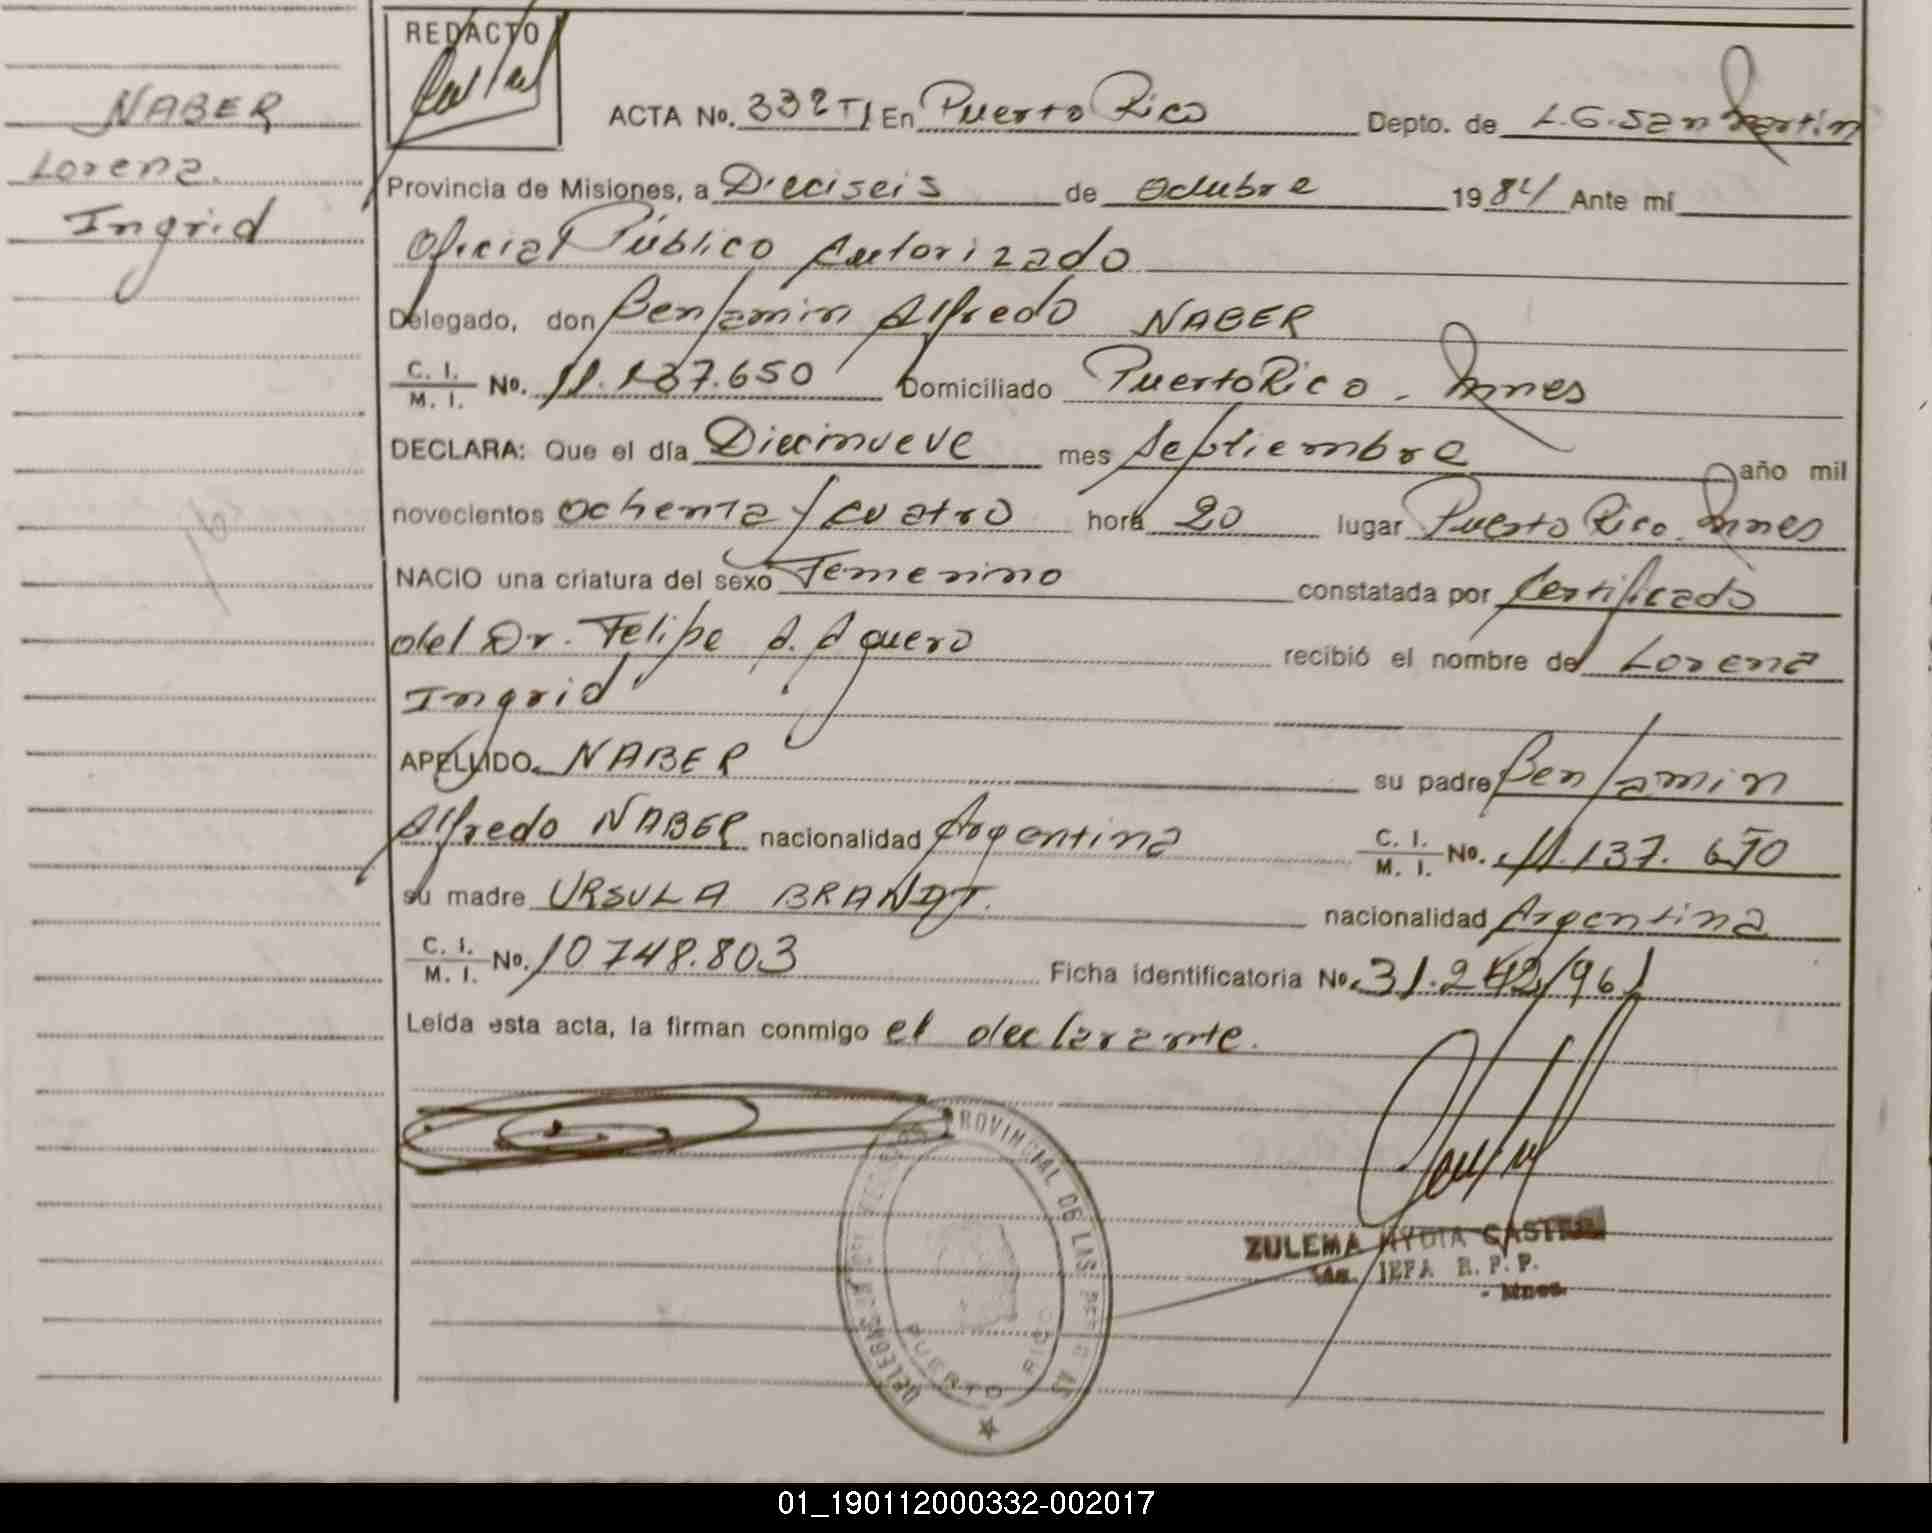 NABER
Lorena
Ingrid
REDACTO
ACTA No. 332 TI En Puerto Rico Depto. de L.G. San Martin
Provincia de Misiones, a Dieciseis de Octubre 1984 Ante mí
Oficial Público Autorizado
Delegado, don Benjamin Alfredo NABER
C. I. / M. I. No. 11.137.650 Domiciliado Puerto Rico - Mnes
DECLARA: Que el día Diecinueve mes Septiembre año mil
novecientos ochenta y cuatro hora 20 lugar Puerto Rico. Mnes
NACIO una criatura del sexo Femenino constatada por Certificado
del Dr. Felipe A. Aguero recibió el nombre de Lorena
Ingrid
APELLIDO NABER su padre Benjamin
Alfredo NABER nacionalidad Argentina C. I. / M. I. No. 11.137.650
su madre URSULA BRANDT. nacionalidad Argentina
C. I. / M. I. No. 10748.803 Ficha identificatoria No. 31.242/961
Leída esta acta, la firman conmigo el declarante.
PROVINCIAL DE LAS PERSONAS
PUERTO RICO
ZULEMA NYDIA
JEFA R. P. P.
- Mnes.
01_190112000332-002017